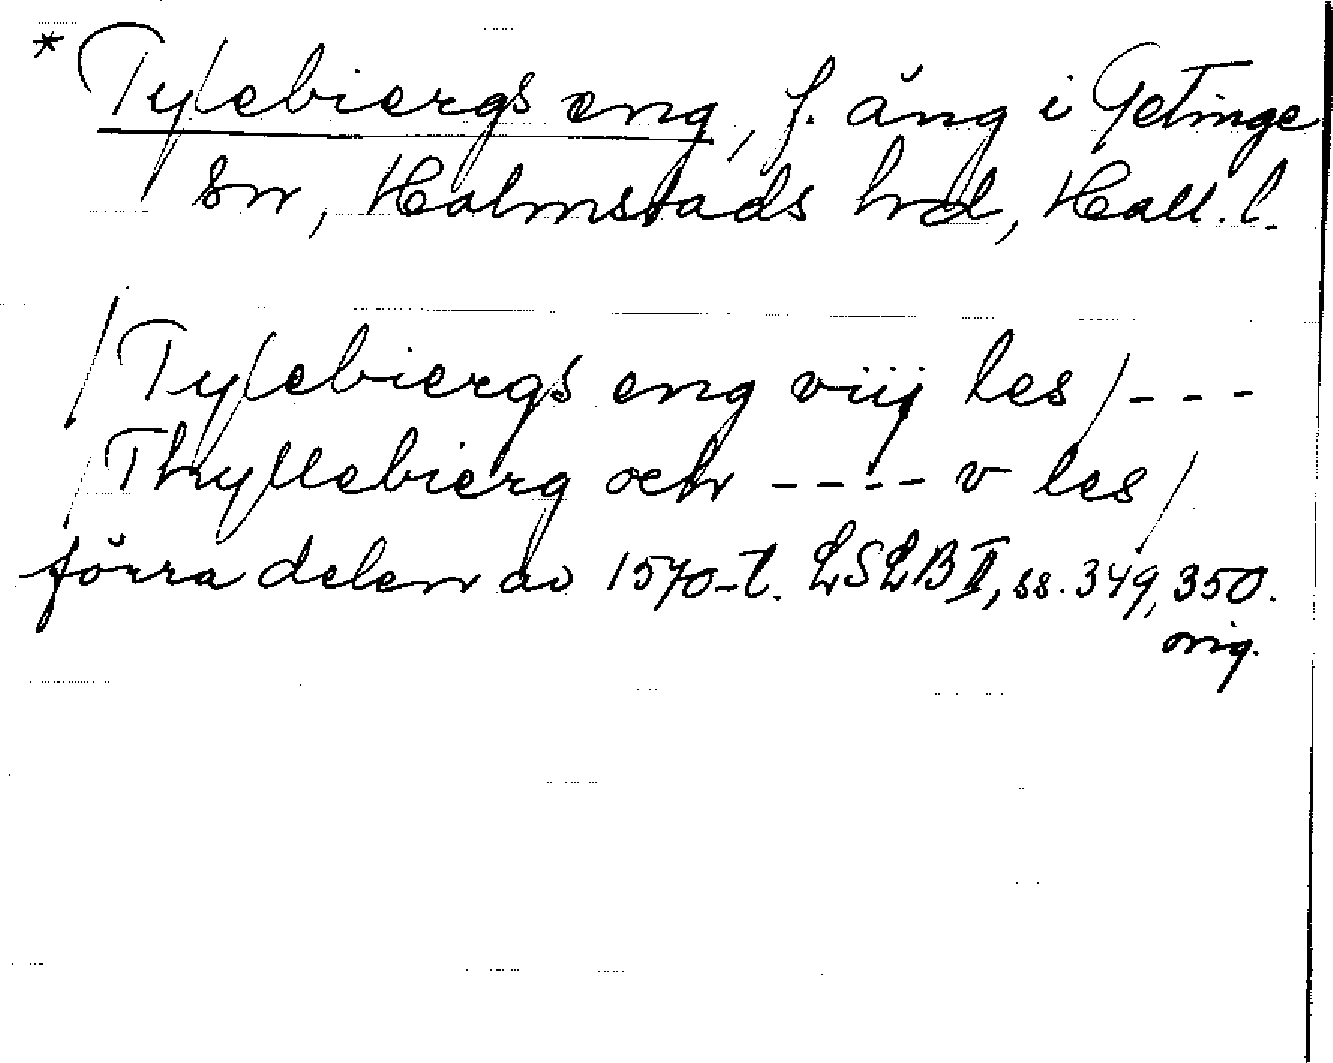 * Tylebiergs eng, f. äng i Getinge
sn, Halmstads hrd, Hall. l.
/Tylebiergs eng viij les/---
/Thyllebierg och ---- v les/
förra delen av 1570-t. LSLB II, ss. 349, 350.
orig.